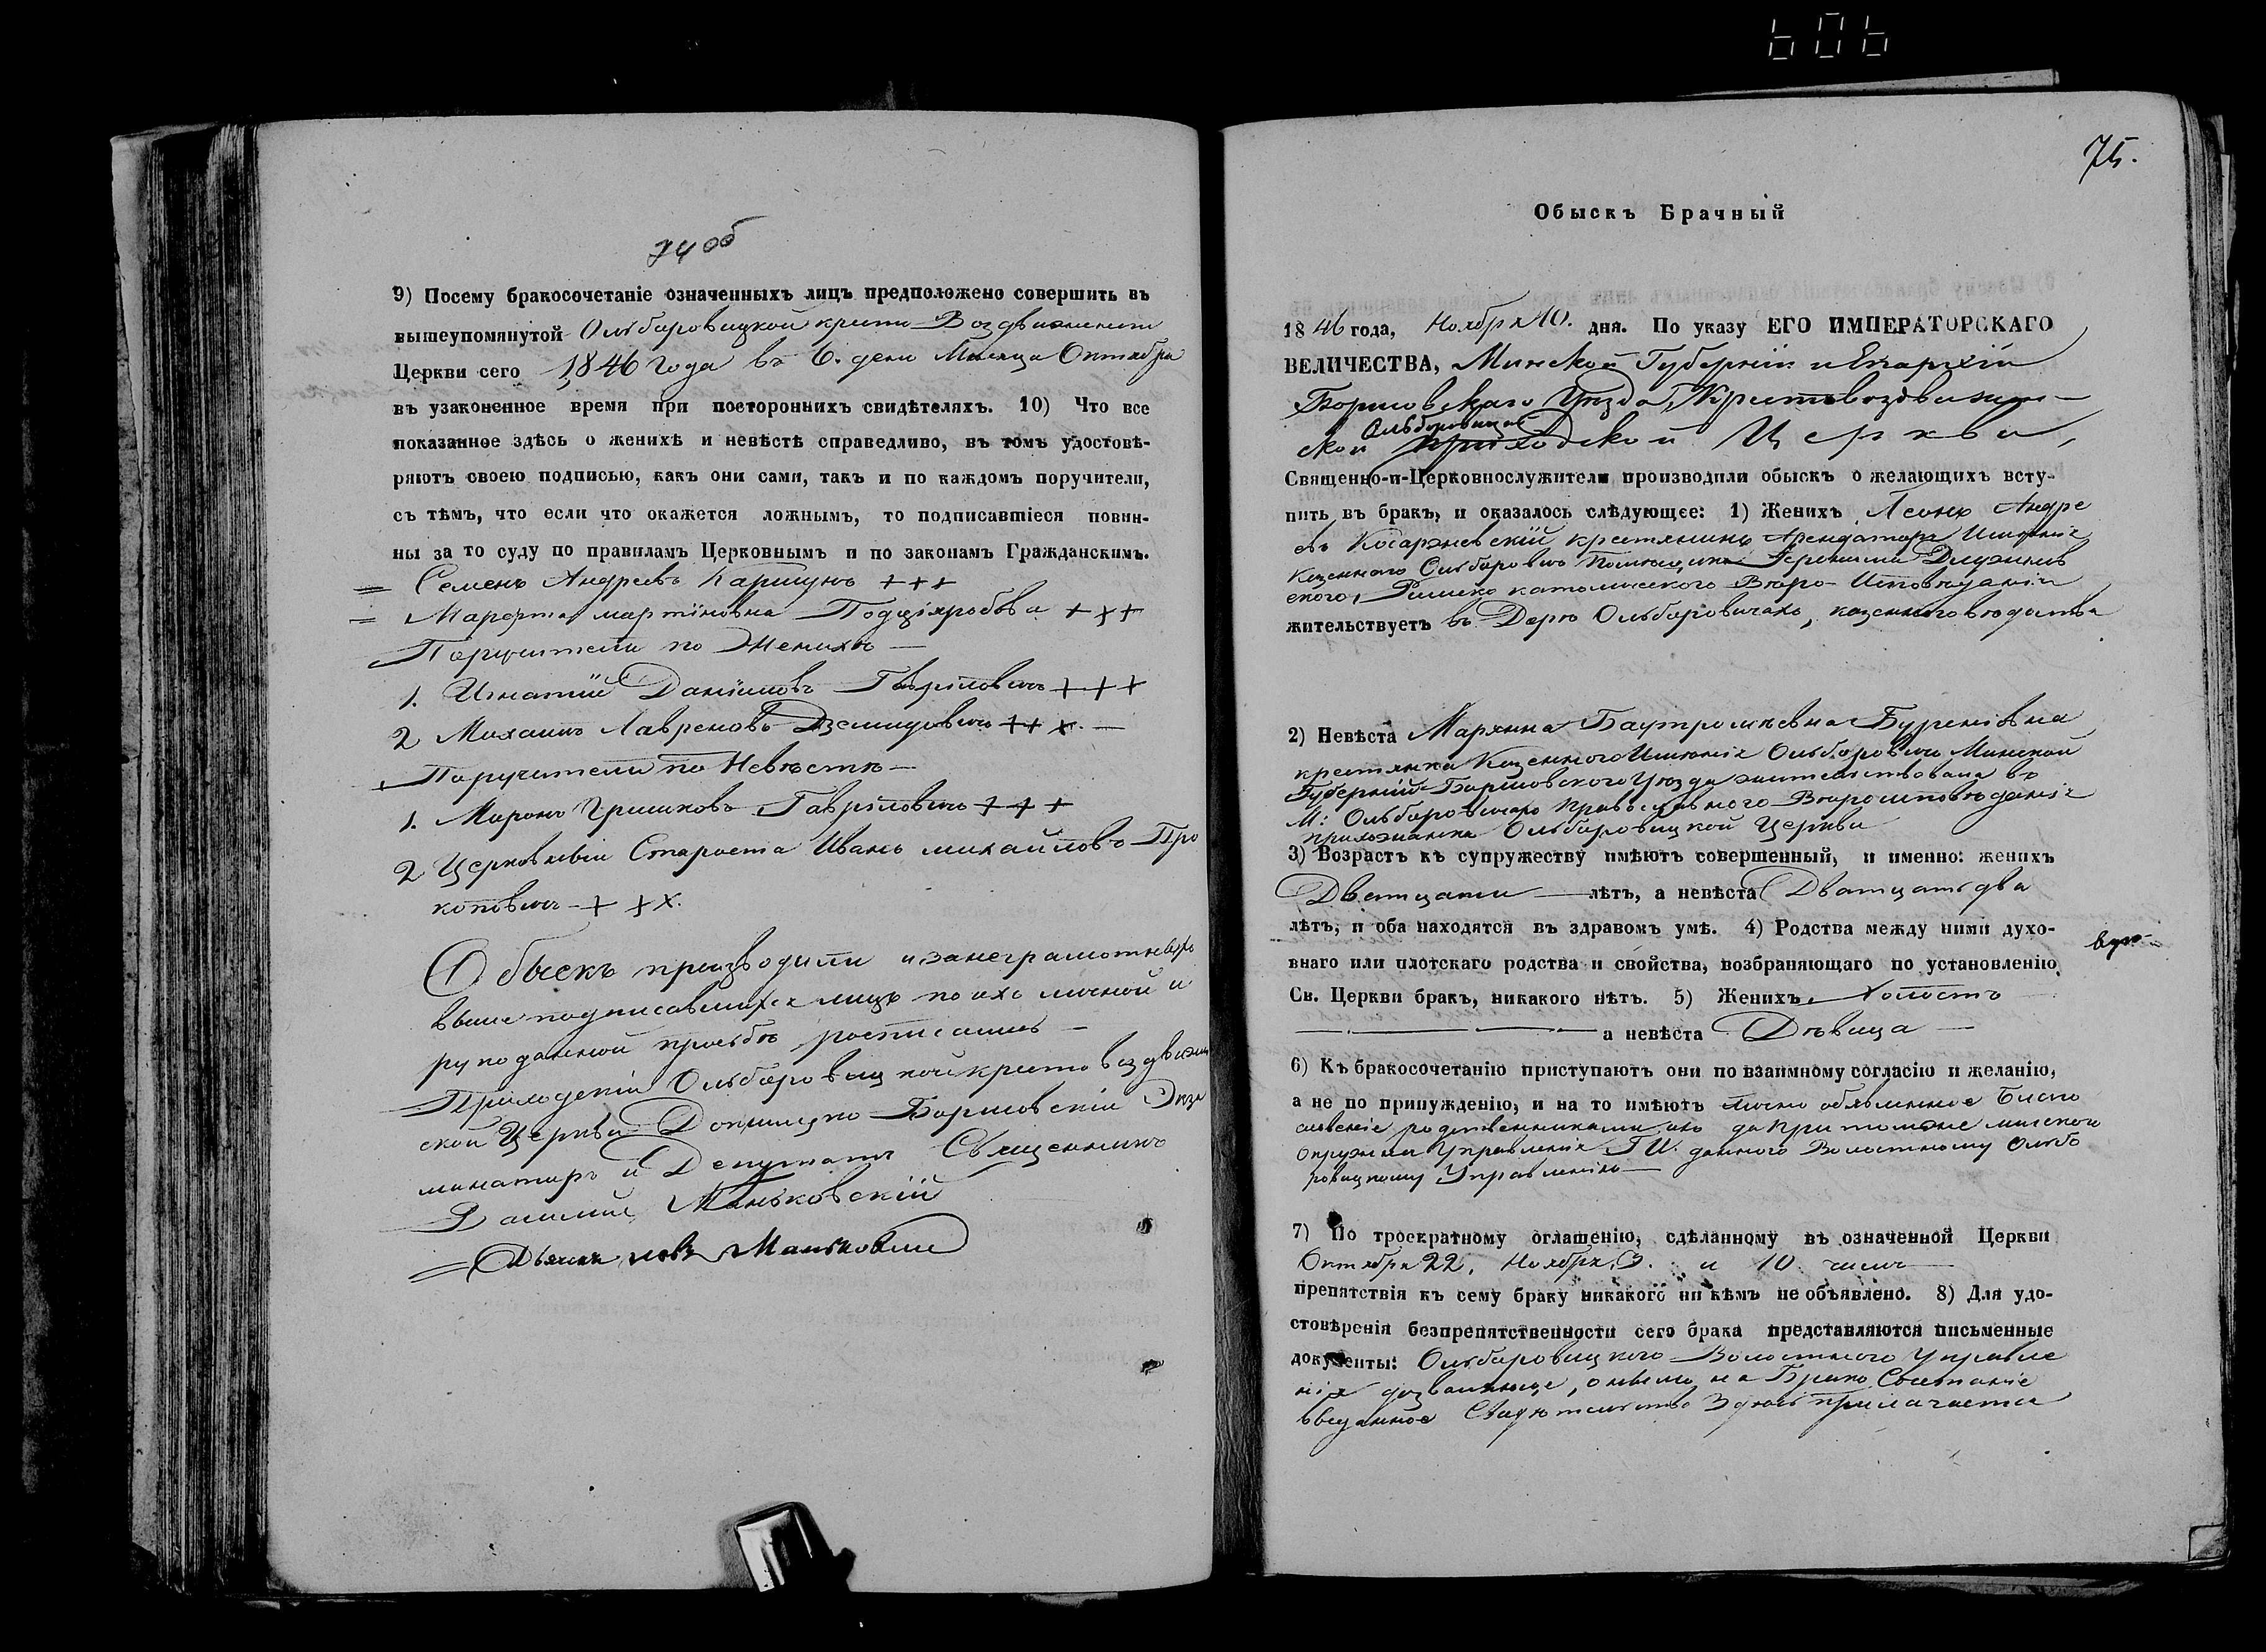 74 об
9) Посему бракосочетаніе означенныхъ лицъ предположено совершить въ
вышеупомянутой Ольборовицкой кресто-Воздвиженской
Церкви сего 1846 года въ 6. день Месяца Октября
въ узаконенное время при постороннихъ свидѣтеляхъ. 10) Что все
показанное здѣсь о женихѣ и невѣстѣ справедливо, въ томъ удостовѣ-
ряютъ своею подписью, какъ они сами, такъ и по каждомъ поручители,
съ тѣмъ, что если что окажется ложнымъ, то подписавшіеся повин-
ны за то суду по правиламъ Церковнымъ и по законамъ Гражданскимъ.
= Семенъ Андреевъ +++
= Марфта мартіновна +++
Поручители по Женихѣ —
1. Игнатій Даніиловъ Гаврiловичъ +++
2 Михаилъ Лавреновъ Дземидовичъ ++ х. —
Поручители по Невѣстѣ —
1. Миронъ Гришковъ Гаврiловичъ +++
2 Церковній Староста Иванъ михайловъ Про
коповичъ + + х.
Обыскъ производили и занеграмотныхъ
выше подписавшихся лицъ по ихъ личной и
рукоданной просьбѣ росписались —
Приходскій Ольборовицкой кресто воздвижен
ской Церкви Докшицко-Борисовскій Экза
минаторъ и Депутатъ Священникъ
Василий Маньковскій
= Дьячекъ Маньковскій
606
75.
Обыскъ Брачный
1846 года, Ноября 10. дня. По указу ЕГО ИМПЕРАТОРСКАГО
ВЕЛИЧЕСТВА, Минской Губерніи и Епархіи
Борисовскаго Уезда, Крестовоздвижен-
Ольборовицкой
ской приходской Церкви,
Священно-и-Церковнослужители производили обыскъ о желающихъ всту-
пить въ бракъ, и оказалось слѣдующее: 1) Женихъ Леонъ Андре
евъ крестянинъ Арендатора Имѣнія
Казенного Ольборовичъ Помещика
Римско католического Вѣро-Исповѣданія
жительствуетъ въ Дерѣ Ольборовичахъ, казенного вѣдомства
2) Невѣста Марянна
крестянка Казенного Имѣнія Ольборовичъ Минской
Губерній Борисовского Уѣзда жительствовала въ
М: Ольборовичахъ Православного Вѣроисповѣданія
прихожанка Ольборовицкой Церкви
3) Возрастъ къ супружеству имѣютъ совершенный, и именно: женихъ
Дватцати — лѣтъ, а невѣста Дватцать два
лѣтъ, и оба находятся въ здравомъ умѣ. 4) Родства между ними духо-
внаго или плотскаго родства и свойства, возбраняющаго по установленію
Св. Церкви бракъ, никакого нѣтъ. 5) Женихъ Холостъ
а невѣста Дѣвица —
6) Къ бракосочетанію приступаютъ они по взаимному согласію и желанію,
а не по принужденію, и на то имѣютъ объявленное Благо
словеніе родственниками ихъ минского
Управленія Г И. данного Волостному Ольбо
ровицкому Управленію —
7) По троекратному оглашенію, сдѣланному въ означенной Церкви
Октября 22, Ноября 3. и 10 числъ
препятствія къ сему браку никакого ни кѣмъ не объявлено. 8) Для удо-
стовѣренія безпрепятственности сего брака представляются письменные
документы: Ольборовицкого Волостного Управле
нія на Брако Сочетаніе
выданное Свидѣтельство Здѣсь прилагается